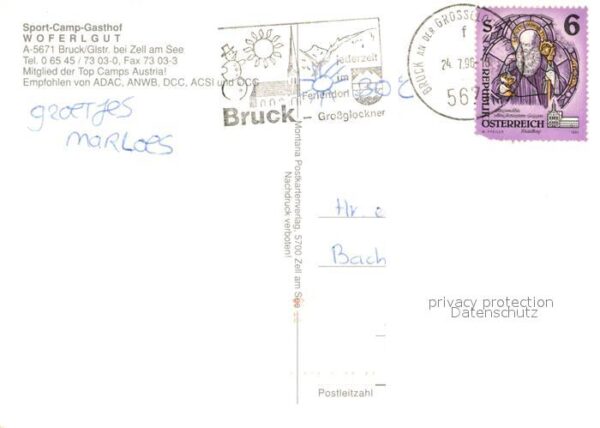 Sport-Camp-Gasthof
WOFERLGUT
A-5671 Bruck/Glstr. bei Zell am See
Tel. 0 65 45 / 73 03-0, Fax 73 03-3
Mitglied der Top Camps Austria!
Empfohlen von ADAC, ANWB, DCC, ACSI und CCC
groetjes
Marloes
jederzeit
im
Feriendorf
Bruck - Großglockner
30°C
BRUCK AN DER GROSSGLO
f
24.7.9
567
S 6
REPUBLIK
ÖSTERREICH
Montana Postkartenverlag, 5700 Zell am See
Nachdruck verboten!
Hr.
Bach
privacy protection
Datenschutz
Postleitzahl